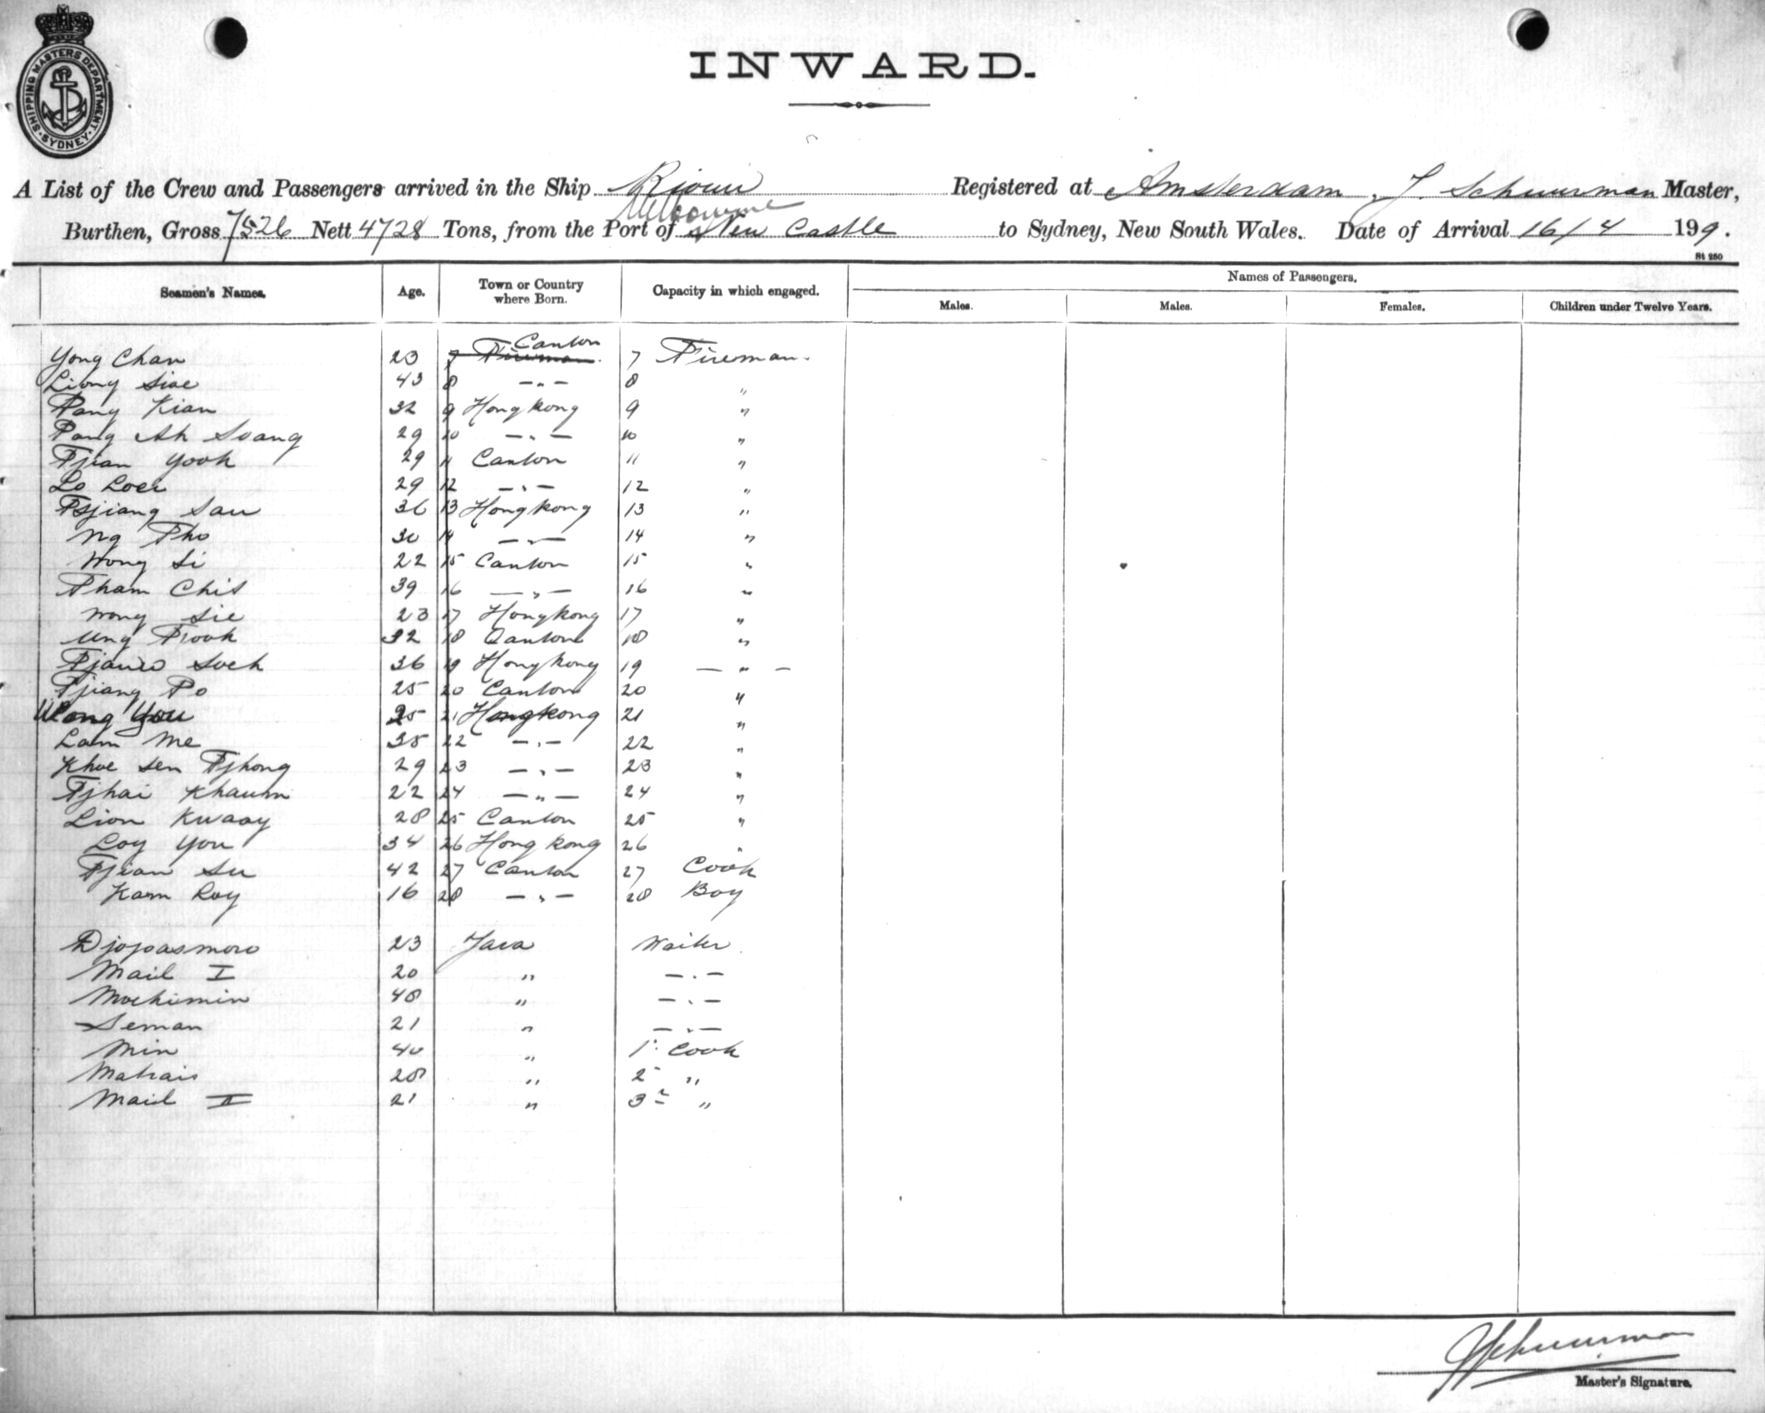 SHIPPING MASTERS DEPARTMENT
SYDNEY
INWARD.
A List of the Crew and Passengers arrived in the Ship Riouw Registered at Amsterdam, J. Schuurman Master,
Melbourne
Burthen, Gross 7526 Nett 4728 Tons, from the Port of New Castle to Sydney, New South Wales. Date of Arrival 16/4 199.
St 250
Seamen's Names. Age. Town or Country where Born. Capacity in which engaged. Names of Passengers.
Males. Males. Females. Children under Twelve Years.
Canton
Yong Chan 23 7 Fireman. 7 Fireman.
Liong Siae 43 8 —"— 8 "
Pang Kian 32 9 Hongkong 9 "
Pang Ah Soang 29 10 —"— 10 "
Tjian Yook 29 11 Canton 11 "
Lo Loei 29 12 —"— 12 "
Tsjiang Sau 36 13 Hongkong 13 "
Ng Tho 30 14 —"— 14 "
Wong Si 22 15 Canton 15 "
Tham Chit 39 16 —"— 16 "
Wong Sie 23 17 Hongkong 17 "
Ung Took 32 18 Canton 18 "
Soek 36 19 Hongkong 19 —"—
Tjiang Po 25 20 Canton 20 "
Wong You 25 21 Hongkong 21 "
Lam Me 35 22 —"— 22 "
Khoe Sen Tjhong 29 23 —"— 23 "
Tjhai Khaum 22 24 —"— 24 "
Lion Kwaay 28 25 Canton 25 "
Loy You 34 26 Hongkong 26 "
Tjian Su 42 27 Canton 27 Cook
Kam Roy 16 28 —"— 28 Boy
Djojoasmoro 23 Java Waiter.
Maid I 20 " —"—
Mochimin 48 " —"—
Seman 21 " —"—
Min 40 " 1e Cook
28 " 2e "
Maid II 21 " 3e "
JSchuurman
Master's Signature.